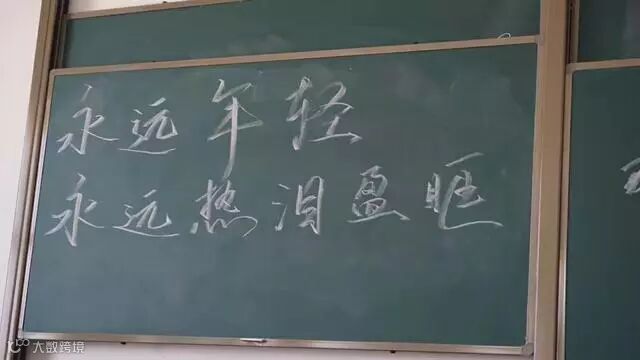 永远年轻
永远热泪盈眶
大数跨境